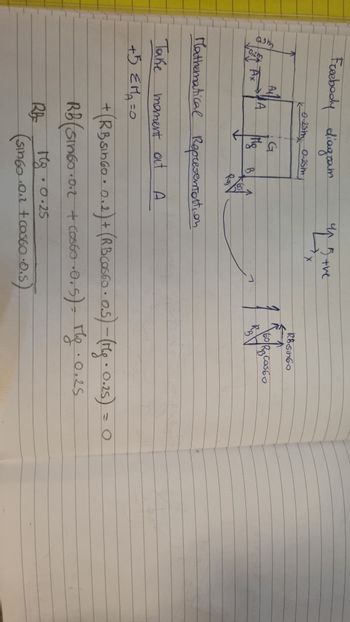 Freebody diagram
y
5, +ve
x
0.25m, 0.25m
G
Ay
A
Ax
Mg
B
60
RB
RBsin60
60
RBcos60
RB
Mathematical Representation
Take moment at A
+5 ΣMA = 0
+(RBsin60 · 0.2) + (RBcos60 · 0.5) - (Mg · 0.25) = 0
RB(sin60 · 0.2 + cos60 · 0.5) = Mg · 0.25
RB Mg · 0.25
(sin60 · 0.2 + cos60 · 0.5)